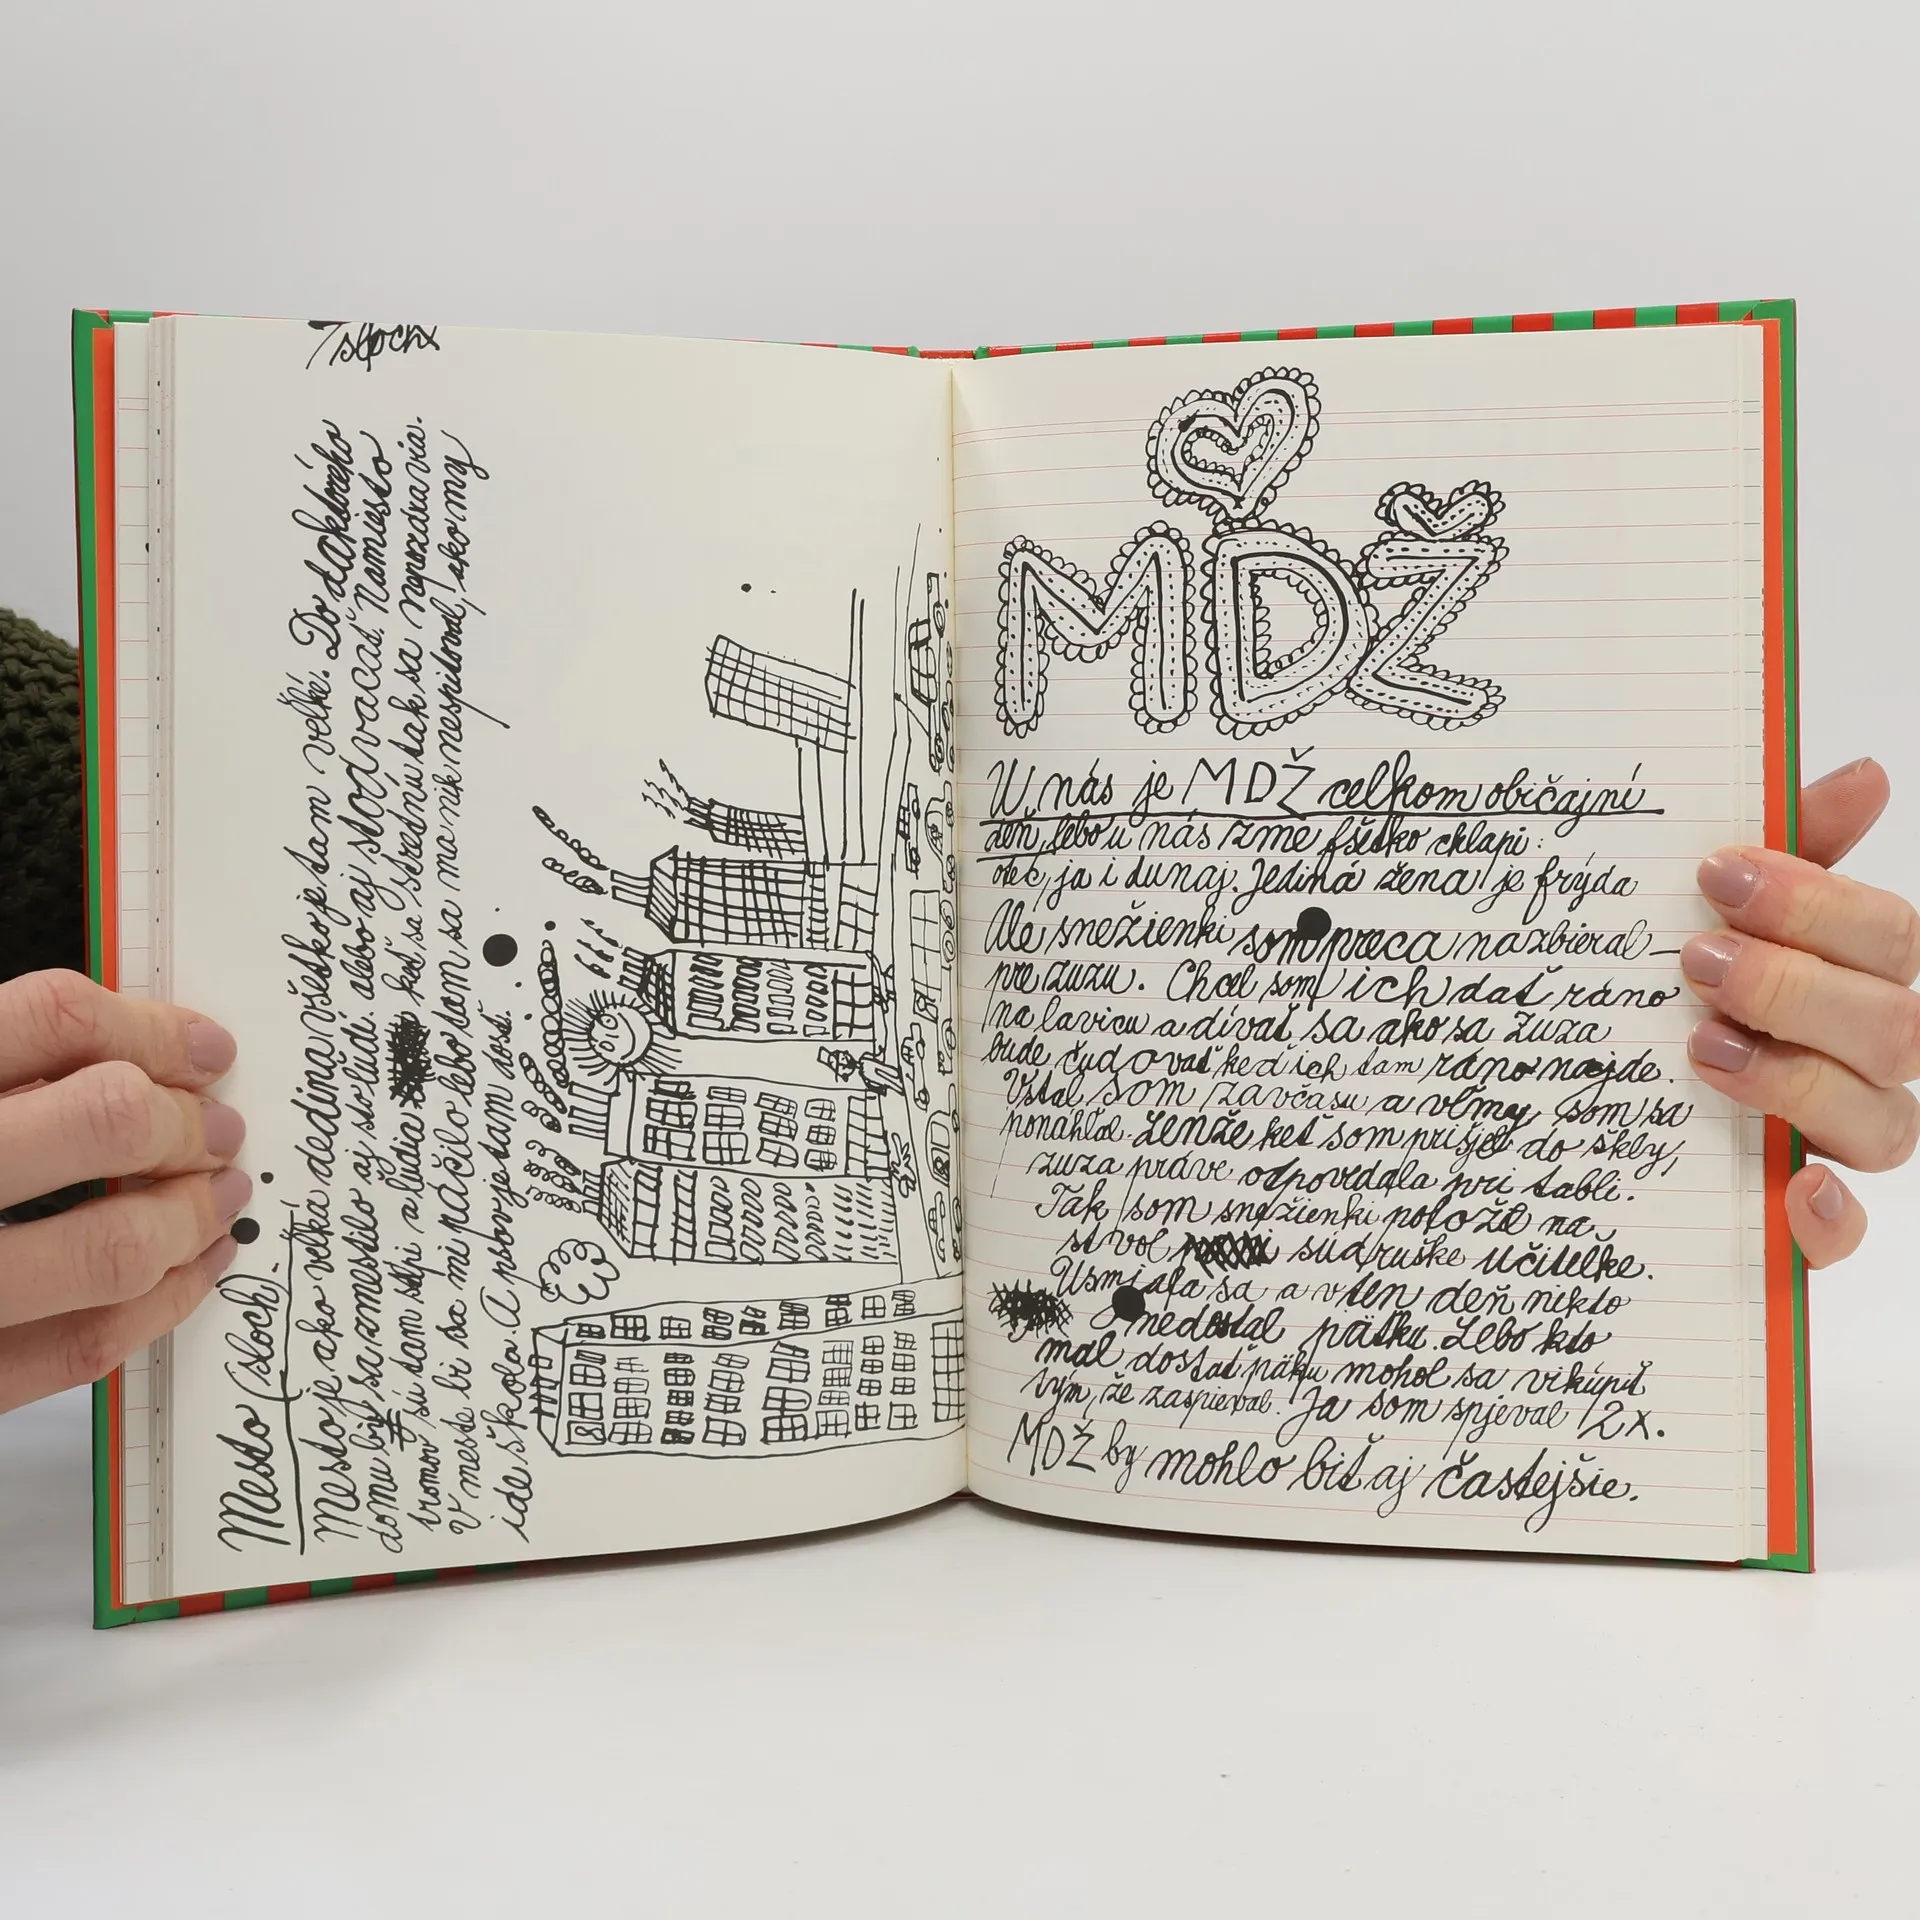 7 sloch
Mesto (sloch).
Mesto je ako veľká dedina všetko je tam veľké. Do daktorého
domu bi sa zmestilo aj sto ľudí. alebo aj stodvacať. Namiesto
sú tam stĺpi a ľudia keď sa stretnú tak sa nepozdravia.
V meste bi sa mi páčilo lebo tam sa ma nik nespitoval, ako my
ide škola. A psov je tam dosť.
MDŽ
U nás je MDŽ celkom običajní
deň, lebo u nás zme fšetko chlapi:
otec, ja i dunaj. Jediná žena je frýda
Ale snežienki som preca nazbieral –
pre zuzu. Chcel som ich dať ráno
na lavicu a dívať sa ako sa zuza
bude čudovať keď ich tam ráno nájde.
Vstal som zavčasu a vľmy som sa
ponáhľal. Ženže keť som prišjel do škly,
zuza práve odpovedala pri tabli.
Tak som snežienki položil na
stvol súdruške učiteľke.
Usmjala sa a v ten deň nikto
nedostal päťku. Lebo kto
mal dostať päťku mohol sa vikúpiť
tým, že zaspieval. Ja som spjeval 2x.
MDŽ by mohlo biť aj častejšie.